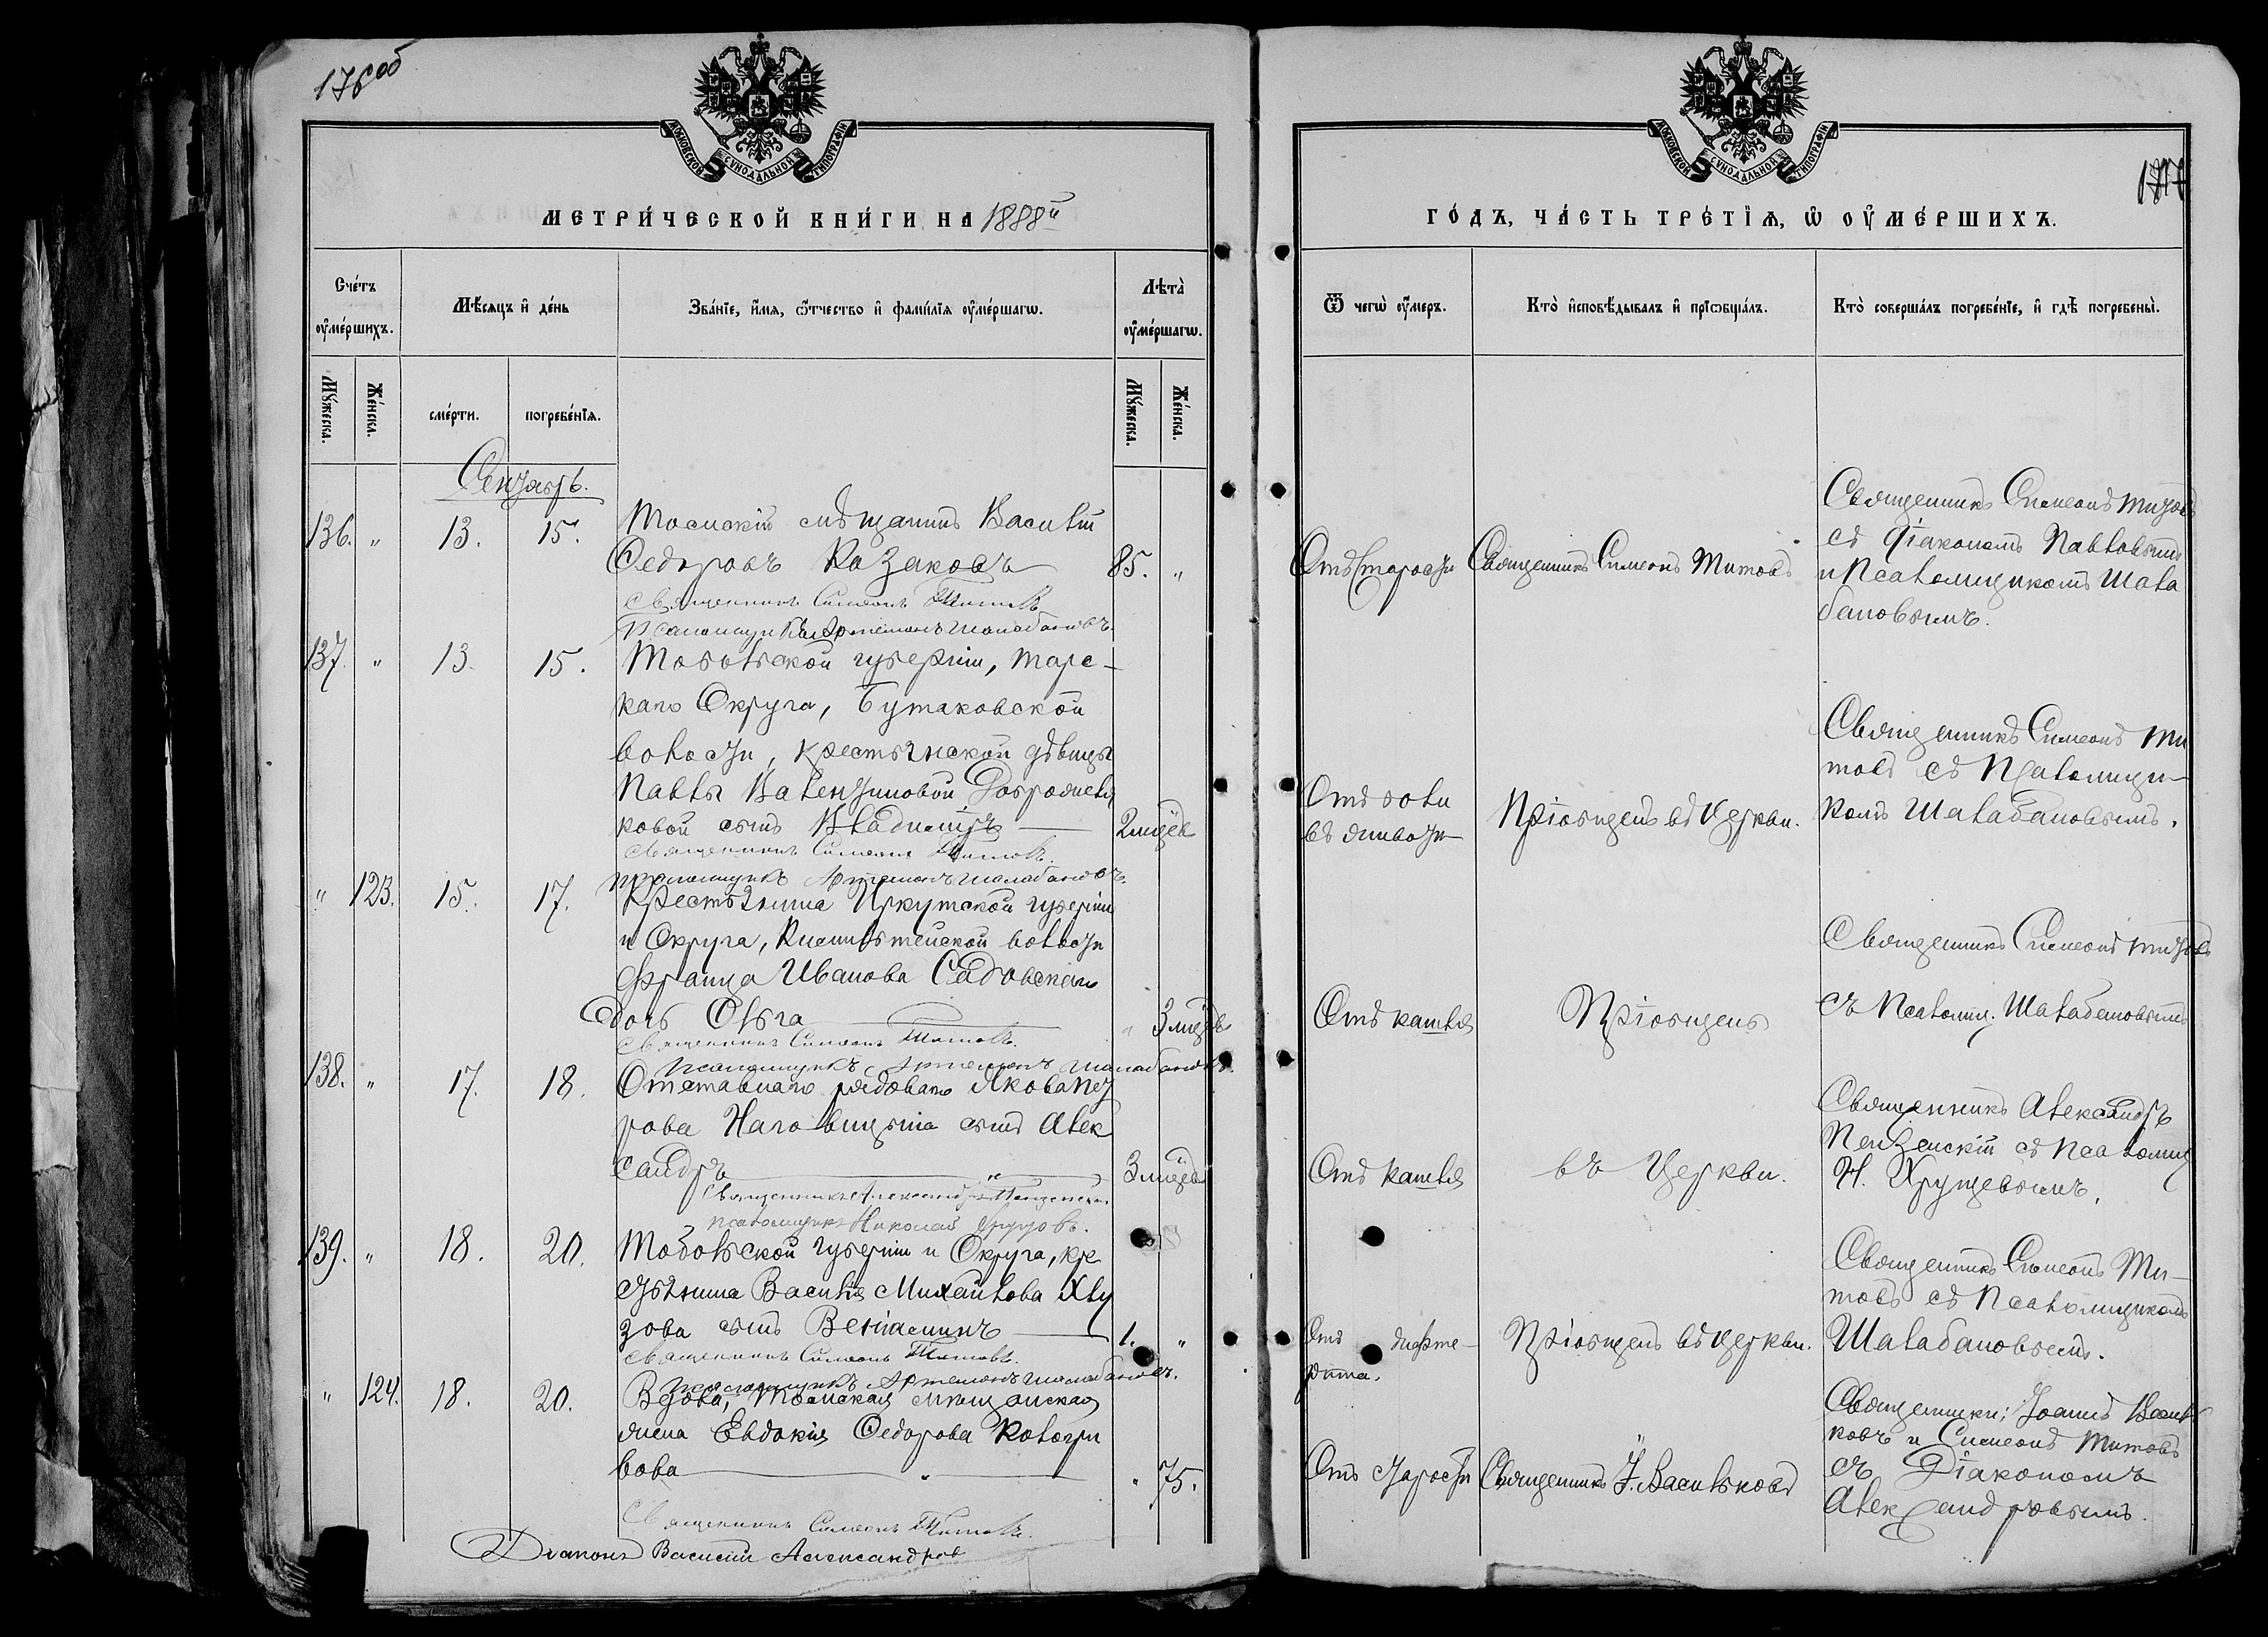 176об
МОСКОВСКОЙ СѴНОДАЛЬНОЙ ТИПОГРАФІИ
МЕТРИ́ЧЕСКОЙ КНИ́ГИ НА 1888й
Сче́тъ ᲂу҆ме́ршихъ.
Мѣ́сяцъ и҆ де́нь
Зва́нїе, и҆́мя, ѻ҆́тчество и҆ фами́лїя ᲂу҆ме́ршагѡ.
Лѣта̀ ᲂу҆ме́ршагѡ.
Му́жеска.
Же́нска.
сме́рти.
погребе́нїя.
Му́жеска.
Же́нска.
Сентябрь.
136. " 13. 15. Томскій мѣщанинъ Василій
Ѳедоровъ Казаковъ 85. "
Священникъ Симеонъ Титовъ
Псаломщикъ Артемонъ Шалабановъ.
137. " 13. 15. Тобольской губерніи, Тарс-
каго Округа, Бутаковской
волости, крестьянской дѣвицы
Павлы Валентиновой
ковой сынъ Владиміръ 2 мцёв
Священникъ Симеонъ Титовъ.
Псаломщикъ Артемонъ Шалабановъ.
" 123. 15. 17. Крестьянина Иркутской губерніи
и Округа, волости
Франца Иванова Садовскаго
дочь Ольга " 3 мцёв
Священникъ Симеонъ Титовъ.
Псаломщикъ Артемонъ Шалабановъ.
138. " 17. 18. Отставнаго рядоваго Якова Пет
рова сынъ Алек
сандръ " 3 мцёв
Священникъ Александръ Пензенскій
Псаломщикъ Николай Хрущовъ.
139. " 18. 20. Тобольской губерніи и Округа, кре
стьянина Василія Михайлова Хлу
зова сынъ Веніаминъ 1. "
Священникъ Симеонъ Титовъ.
Псаломщикъ Артемонъ Шалабановъ.
" 124. 18. 20. Вдова, Томская мѣщанская
жена Евдокія Ѳедорова Кологри
вова " " 75.
Священникъ Симеонъ Титовъ.
Діаконъ Василій Александровъ
МОСКОВСКОЙ СѴНОДАЛЬНОЙ ТИПОГРАФІИ
ГО́ДЪ, ЧА́СТЬ ТРЕ́ТЇЯ, Ѡ҆ ОУ҆МЕ́РШИХЪ.
Ѿ чегѡ̀ ᲂу҆́меръ.
Кто̀ и҆сповѣ́дывалъ и҆ прїѡбща́лъ.
Кто̀ соверша́лъ погребе́нїе, и҆ гдѣ̀ погребены̀.
Отъ старости Священникъ Симеонъ Титовъ
Священникъ Симеонъ Титовъ
съ діакономъ Павловымъ
и Псаломщикомъ Шала
бановымъ.
Отъ боли
въ животѣ
Пріобщенъ въ Церкви.
Священникъ Симеонъ Ти
товъ съ Псаломщи-
комъ Шалабановымъ.
Отъ кашля
Пріобщена
Священникъ Симеонъ Титовъ
съ Псаломщ. Шалабановымъ
Отъ кашля
въ Церкви.
Священникъ Александръ
Пензенскій съ Псаломщ
Н. Хрущевымъ.
Отъ дифте-
рита.
Пріобщенъ въ Церкви.
Священникъ Симеонъ Ти-
товъ съ Псаломщикомъ
Шалабановымъ.
Отъ старости
Священникъ І. Васильковъ
Священники: Іоаннъ Василь
ковъ и Симеонъ Титовъ
съ Діакономъ
Александровымъ.